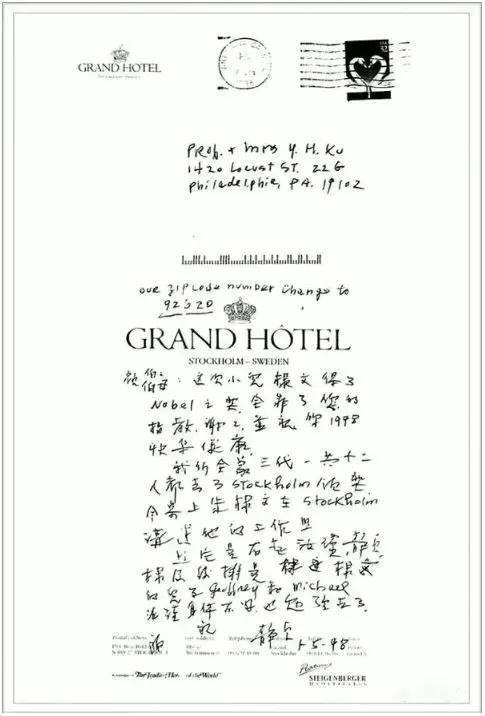 GRAND HOTEL
PROF. + Mrs Y. H. Ku
1420 Locust ST. 22G
Philadelphia, PA. 19102
our ZIPCode number change to
GRAND HÔTEL
STOCKHOLM – SWEDEN
顾伯伯伯母：这次小儿棣文得了
Nobel 之奖全靠了您的
指教,谢2,並祝你1998
快乐健康.
我们全家三代一共十二
人都去了Stockholm领奖
今寄上朱棣文在Stockholm
講述他的工作照
右起汝瑾,静貞
棣文後排是棣文
的兒子Geoffrey和Michael
汝瑾身体不好,也勉强去了.
祝
静上
1-5-98
"The Leading Hotels of the World"
STEIGENBERGER